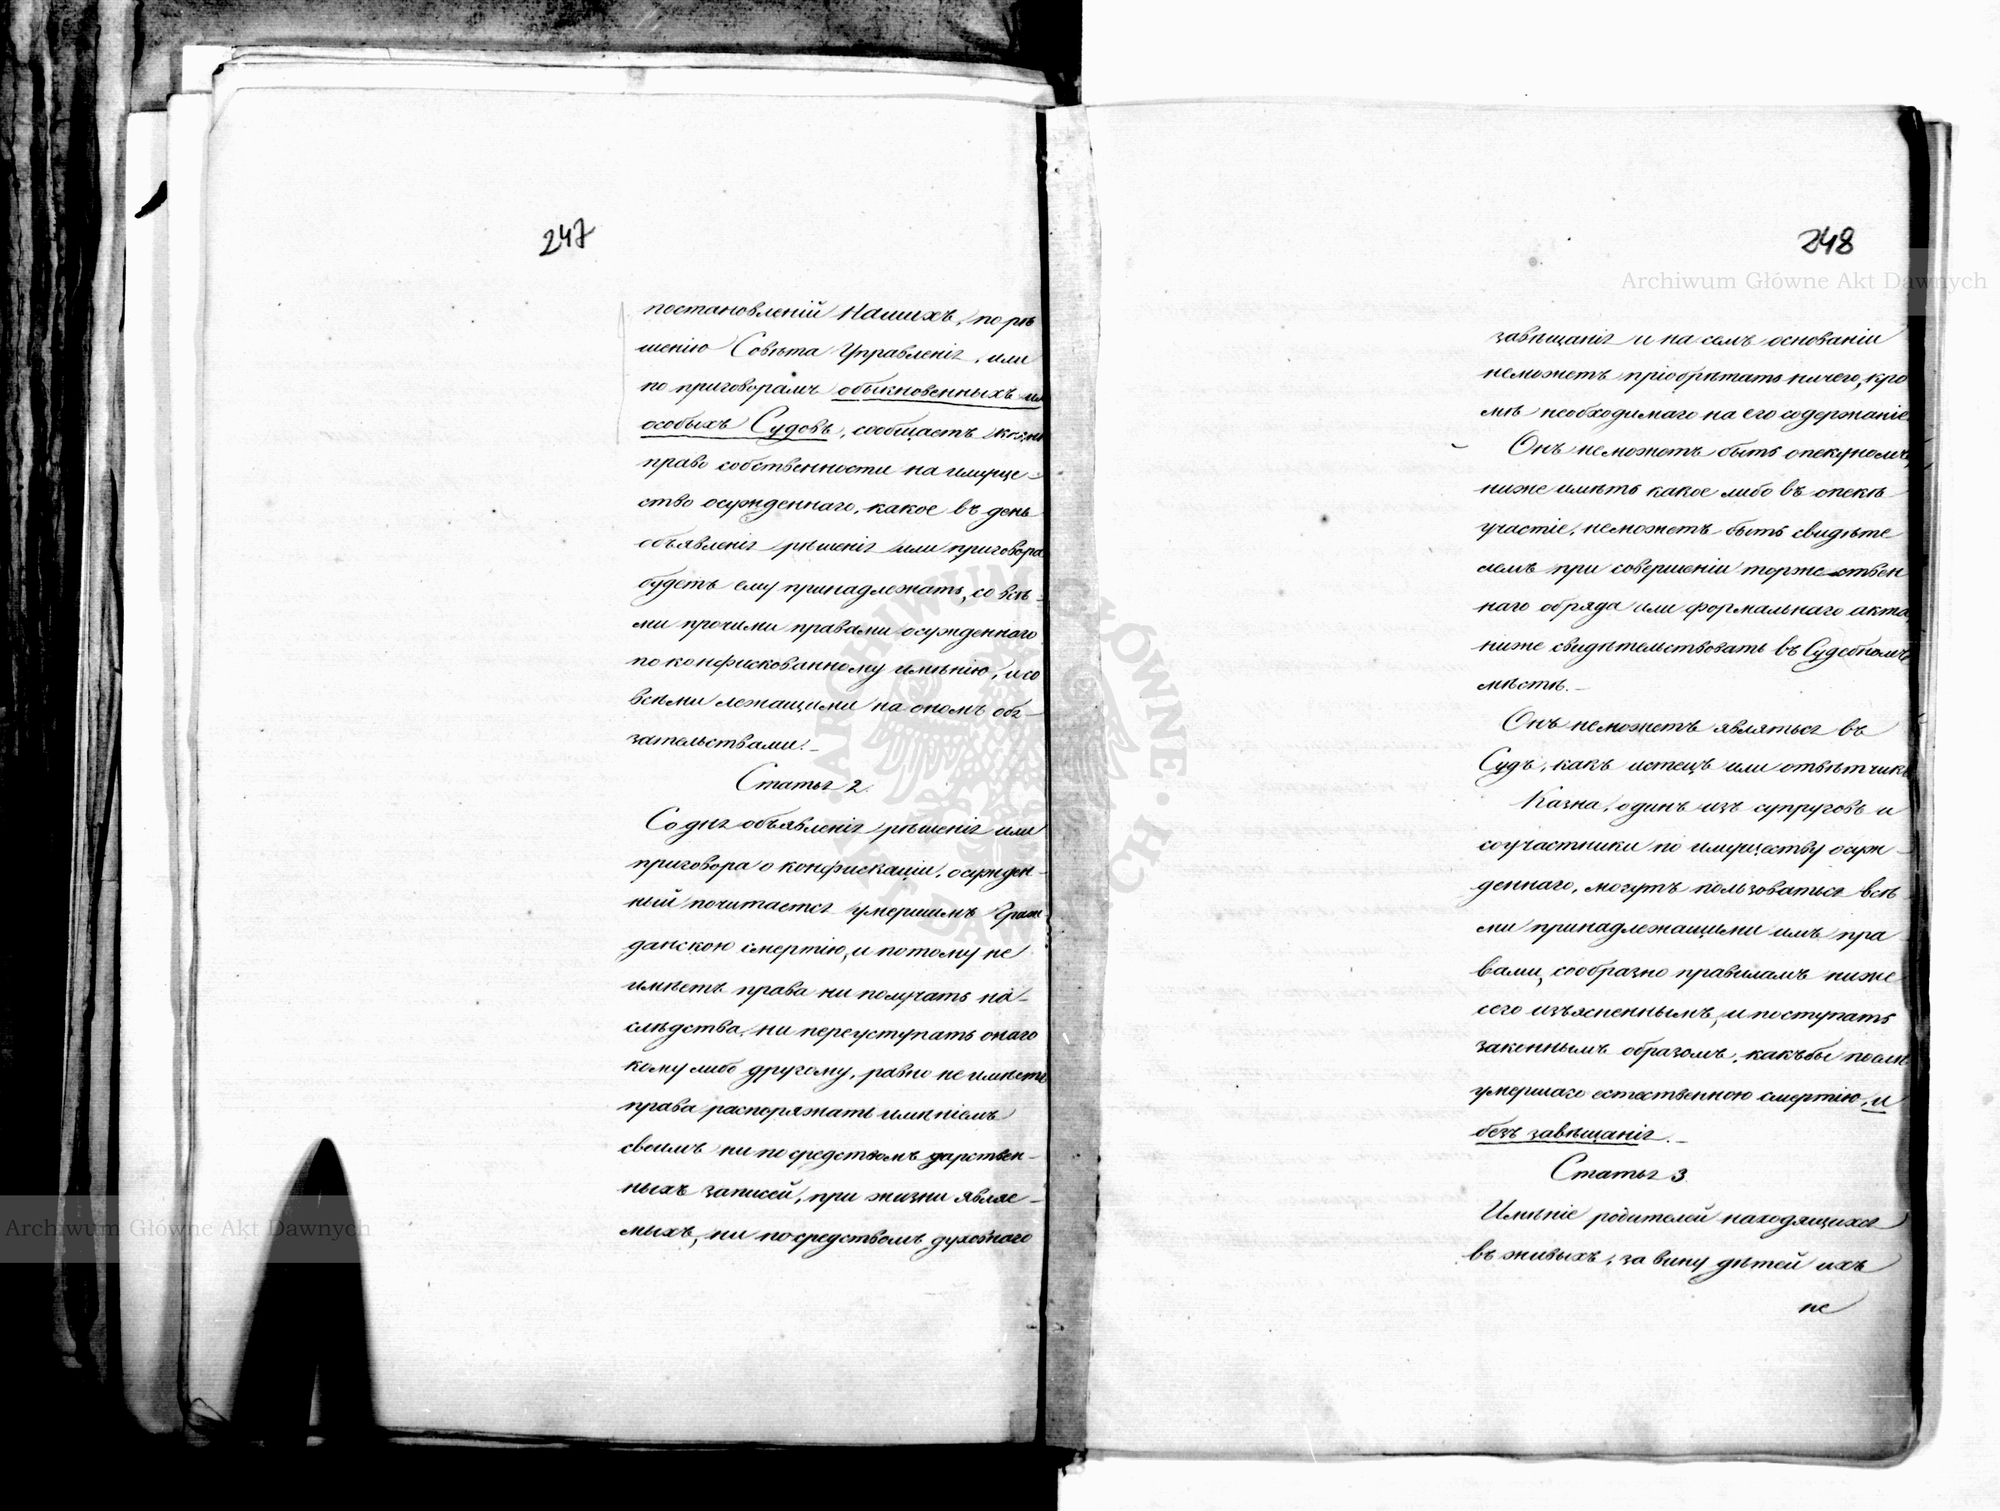 247
постановленій Нашихъ, по рѣ
шенію Совѣта Управленія, или
по приговорамъ обыкновенныхъ или
особыхъ Судовъ, сообщаетъ Казнѣ
право собственности на имуще-
ство осужденнаго, какое въ день
объявленія рѣшенія или приговора
будетъ ему принадлежать, со всѣ-
ми прочими правами осужденнаго
по конфискованному имѣнію, и со
всѣми лежащими на ономъ обя-
зательствами.-
Статья 2.
Со дня объявленія рѣшенія или
приговора о конфискаціи, осужден-
ный почитается умершимъ Граж-
данскою смертію, и потому не
имѣетъ права ни получать на-
слѣдства, ни переуступать онаго
кому либо другому, равно не имѣетъ
права распоряжать имѣніемъ
своимъ ни посредствомъ дарствен-
ныхъ записей, при жизни являе-
мыхъ, ни посредствомъ духовнаго
248
завѣщанія и на семъ основаніи
неможетъ пріобрѣтать ничего, кро
мѣ необходимаго на его содержаніе
Онъ неможетъ быть опекуномъ,
ниже имѣть какое либо въ опекѣ
участіе, неможетъ быть свидѣте
лемъ при совершеніи торжественъ
наго обряда или формальнаго акта,
ниже свидѣтельствовать въ Судебномъ
мѣстѣ.-
Онъ неможетъ являться въ
Судъ, какъ истецъ или отвѣтчикъ
Казна, одинъ изъ супруговъ и
соучастники по имуществу осуж-
деннаго, могутъ пользоваться всѣ-
ми принадлежащими имъ пра-
вами, сообразно правиламъ ниже
сего изъясненнымъ, и поступать
законнымъ образомъ, какъбы послѣ
умершаго естественною смертію, и
безъ завѣщанія.-
Статья 3.
Имѣніе родителей находящихся
въ живыхъ, за вину дѣтей ихъ
не
Archiwum Główne Akt Dawnych
Archiwum Główne Akt Dawnych